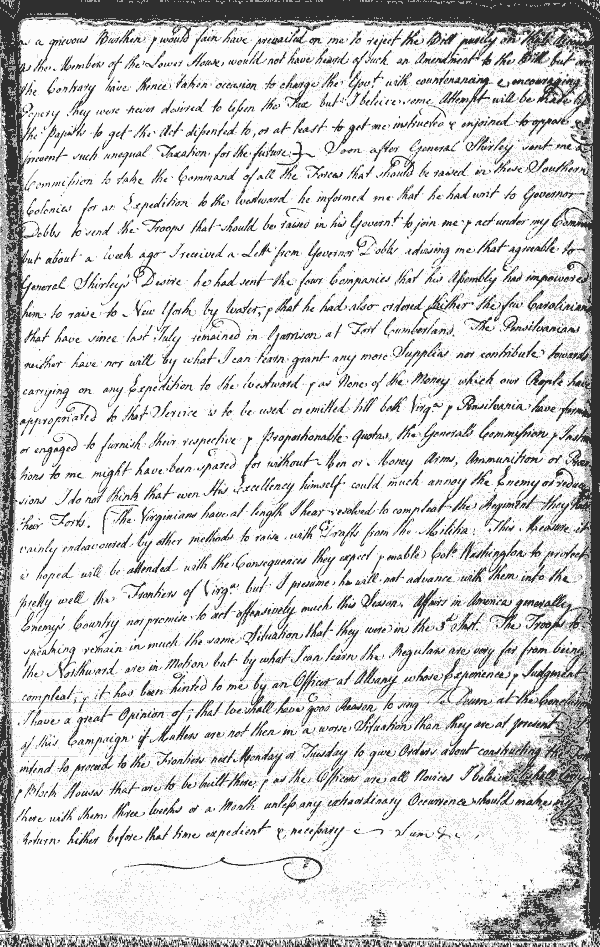 a grievous Burthen & would fain have prevailed on me to reject the Bill purely on that
as the Members of the Lower House would not have heard of such an Amendment to the Bill but on
the Contrary have thence taken occasion to charge the Govt. with countenancing & encouraging
Popery they were never desired to lessen the Tax but I believe some Attempt will be made by
the Papists to get the Act dissented to, or at least to get me instructed & enjoined to oppose &
prevent such unequal Taxation for the future. Soon after General Shirley sent me a
Commission to take the Command of all the Forces that should be raised in these Southern
Colonies for an Expedition to the Westward he informed me that he had writ to Governor
Dobbs to send the Troops that should be raised in his Governt. to join me & act under my
but about a Week ago I received a Lettr. from Governor Dobbs advising me that agreable to
General Shirley's Desire he had sent the four Companies that his Assembly had impowered
him to raise to New York by Water, & that he had also ordered thither the few Carolinians
that have since last July remained in Garrison at Fort Cumberland. The Pensilvanians
neither have nor will by what I can learn grant any more Supplies nor contribute towards
carrying on any Expedition to the Westward & as None of the Money which our People have
appropriated to that Service is to be used or emitted till both Virga. & Pensilvania have
or engaged to furnish their respective & Proportionable Quotas, the Generals Commission &
tions to me might have been spared for without Men or Money Arms, Ammunition or
sions I do not think that even His Excellency himself could much annoy the Enemy or reduce
their Forts. The Virginians have at length I hear resolved to compleat the Regiment they
vainly endeavoured by other methods to raise with Drafts from the Militia; This measure it
is hoped will be attended with the Consequences they expect & enable Colo. Washington to protect
pretty well the Frontiers of Virga. but I presume he will not advance with them into the
Enemy's Country nor promise to act offensively much this Season. Affairs in America generally
speaking remain in much the same Situation that they were in the 3d. Inst. The Troops to
the Northward are in Motion but by what I can learn the Regulars are very far from being
compleat; & it has been hinted to me by an Officer at Albany whose Experience & Judgment
I have a great Opinion of; that we shall have good Reason to sing Te Deum at the
of this Campaign if Matters are not then in a worse Situation than they are at present
intend to proceed to the Frontiers next Monday or Tuesday to give Orders about constructing the
& Block Houses that are to be built there, & as the Officers are all Novices I believe I shall
there with them three Weeks or a Month unless any extraordinary Occurrence should make my
Return hither before that time expedient & necessary I am &c.